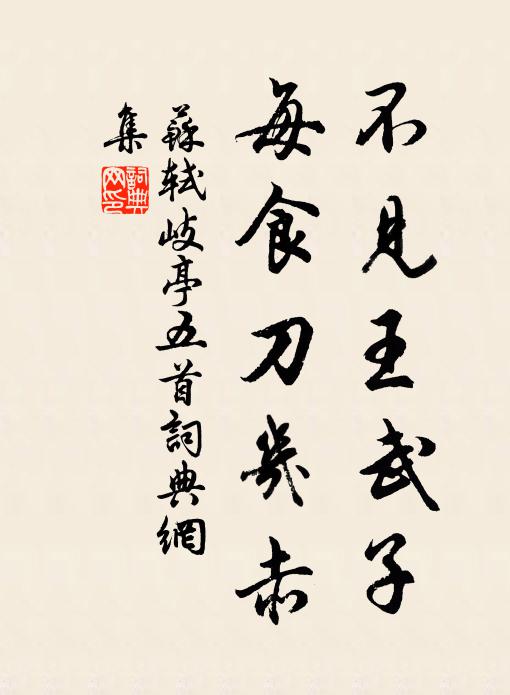 不見王武子
每食刀幾赤
蘇軾岐亭五首詞典網
集
詞典
网印